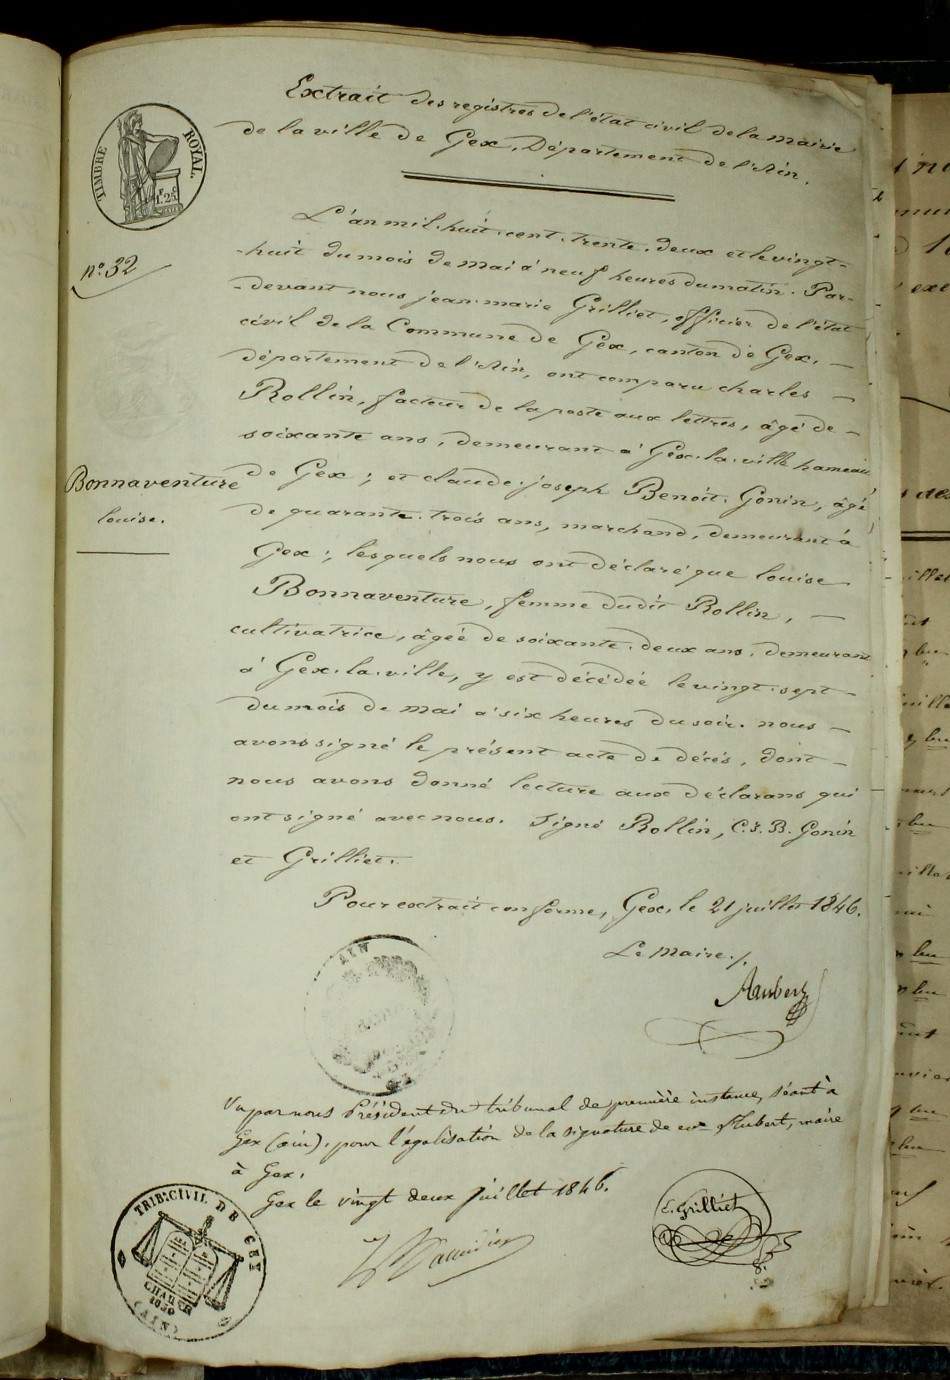 Extrait des registres de l'état civil de la mairie
de la ville de Gex, Département de l'Ain.
TIMBRE ROYAL.
1F. 25C
n.º 32
L'an mil.huit.cent.trente.deux et le vingt-
-huit du mois de mai à neuf heures du matin. Par-
-devant nous jean.marie Grilliet, officier de l'état
civil de la Commune de Gex, canton de Gex,
département de l'Ain, ont comparu charles
Rollin, facteur de la poste aux lettres, âgé de
soixante ans, demeurant à Gex.la.ville hameau
Bonnaventure
louise.
de Gex; et claude.joseph Benoit.Gonin, âgé
de quarante.trois ans, marchand, demeurant à
Gex; lesquels nous ont déclaré que louise
Bonnaventure, femme dudit Rollin,
cultivatrice, âgée de soixante.deux ans, demeurant
à Gex.la.ville, y est décédée le vingt.sept
du mois de mai à six heures du soir. nous
avons signé le présent acte de décès, dont
nous avons donné lecture aux déclarans qui
ont signé avec nous. Signé Rollin, C.J.B. Gonin
et Grilliet.
Pour extrait conforme, Gex, le 21 juillet 1846.
Le Maire,
AIN
Aubert
Vu par nous Président du tribunal de première instance, séant à
Gex (ain), pour légalisation de la signature de Mr Aubert, maire
à Gex.
Gex le vingt deux juillet 1846.
TRIB: CIVIL DE GEX
CHARTE
1830
(AIN)
L. Grilliet